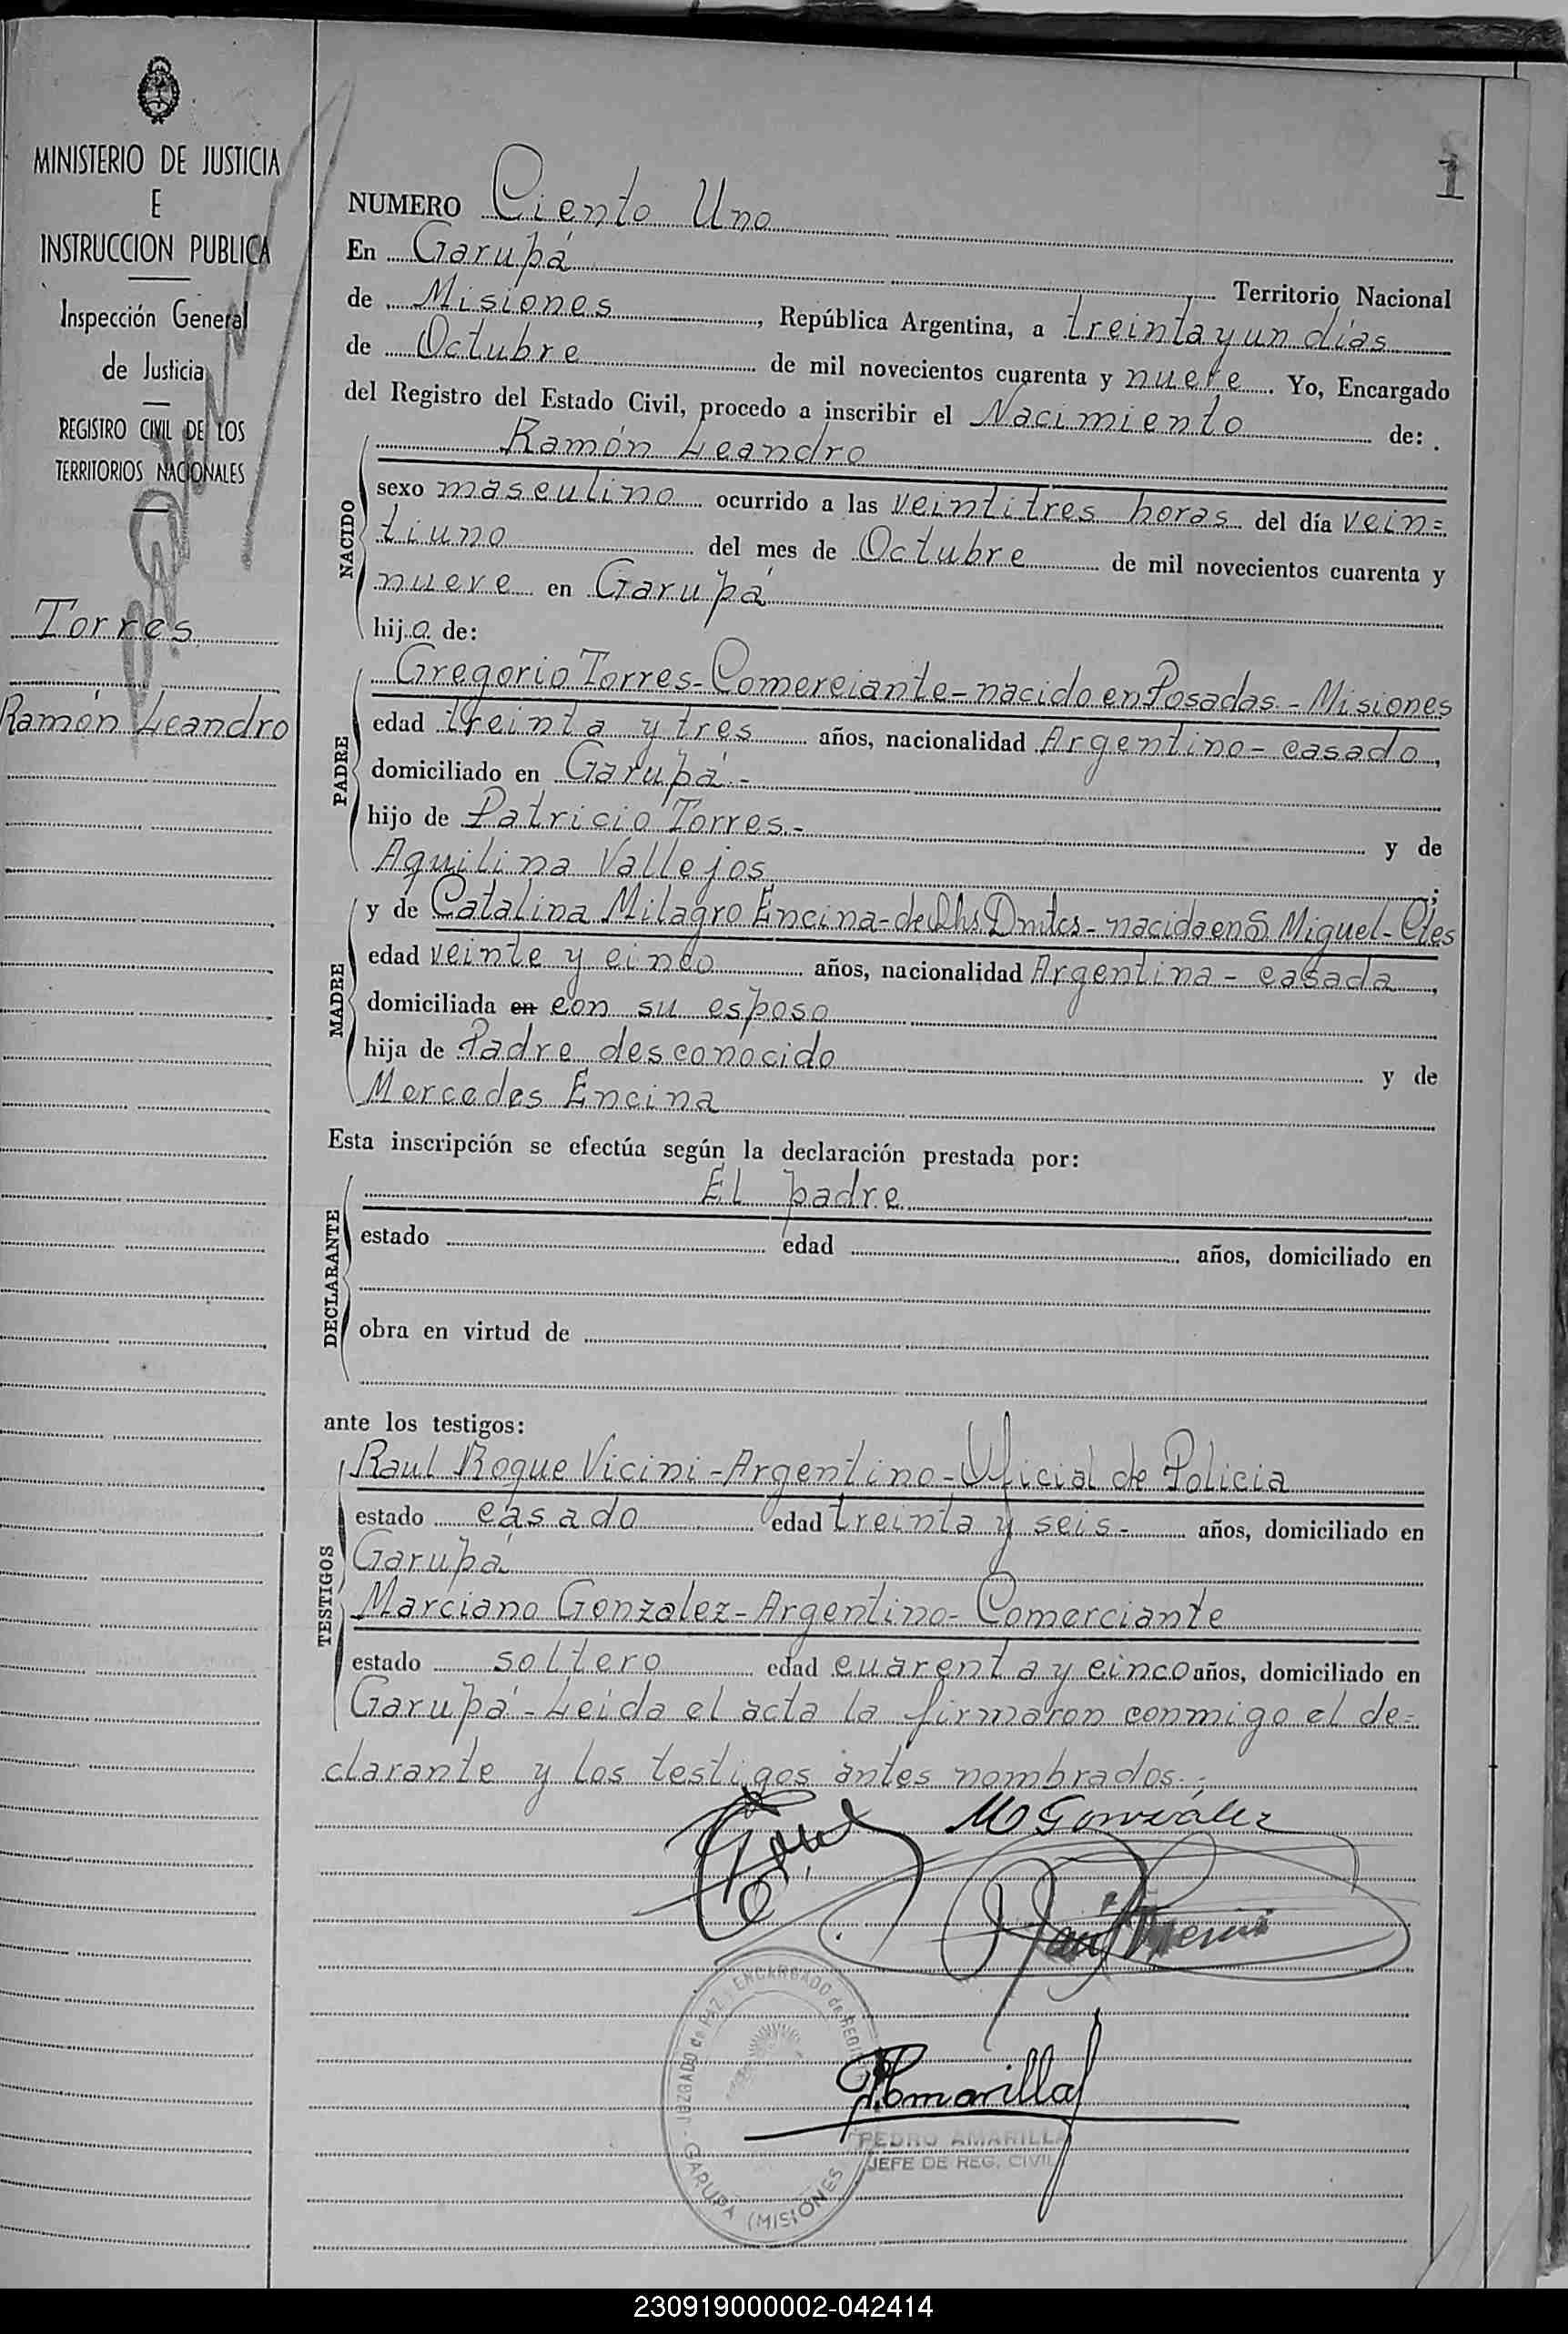 MINISTERIO DE JUSTICIA
E
INSTRUCCION PUBLICA
Inspección General
de Justicia
REGISTRO CIVIL DE LOS
TERRITORIOS NACIONALES
Torres
Ramón Leandro
1
NUMERO Ciento Uno
En Garupá Territorio Nacional
de Misiones, República Argentina, a treinta y un días
de Octubre de mil novecientos cuarenta y nueve. Yo, Encargado
del Registro del Estado Civil, procedo a inscribir el Nacimiento de:
NACIDO
Ramón Leandro
sexo masculino ocurrido a las veintitres horas del día vein=
tiuno del mes de Octubre de mil novecientos cuarenta y
nueve en Garupá
hijo de:
PADRE
Gregorio Torres-Comerciante-nacido en Posadas-Misiones
edad treinta y tres años, nacionalidad Argentino-casado,
domiciliado en Garupá-
hijo de Patricio Torres.- y de
Aquilina Vallejos;
MADRE
y de Catalina Milagro Encina-de Qhs. Dmtcs-nacida en S. Miguel-Ctes
edad veinte y cinco años, nacionalidad Argentina-casada,
domiciliada en con su esposo
hija de Padre desconocido y de
Mercedes Encina
Esta inscripción se efectúa según la declaración prestada por:
DECLARANTE
El padre
estado edad años, domiciliado en
obra en virtud de
ante los testigos:
TESTIGOS
Raul Roque Vicini-Argentino-Oficial de Policia
estado casado edad treinta y seis- años, domiciliado en
Garupá
Marciano Gonzalez-Argentino-Comerciante
estado soltero edad cuarenta y cinco años, domiciliado en
Garupá-Leída el acta la firmaron conmigo el de=
clarante y los testigos antes nombrados.-
M Gonzalez
JUZGADO de PAZ y ENCARGADO de REG
GARUPA (MISIONES
PAmarilla
PEDRO AMARILLA
JEFE DE REG. CIVIL
230919000002-042414